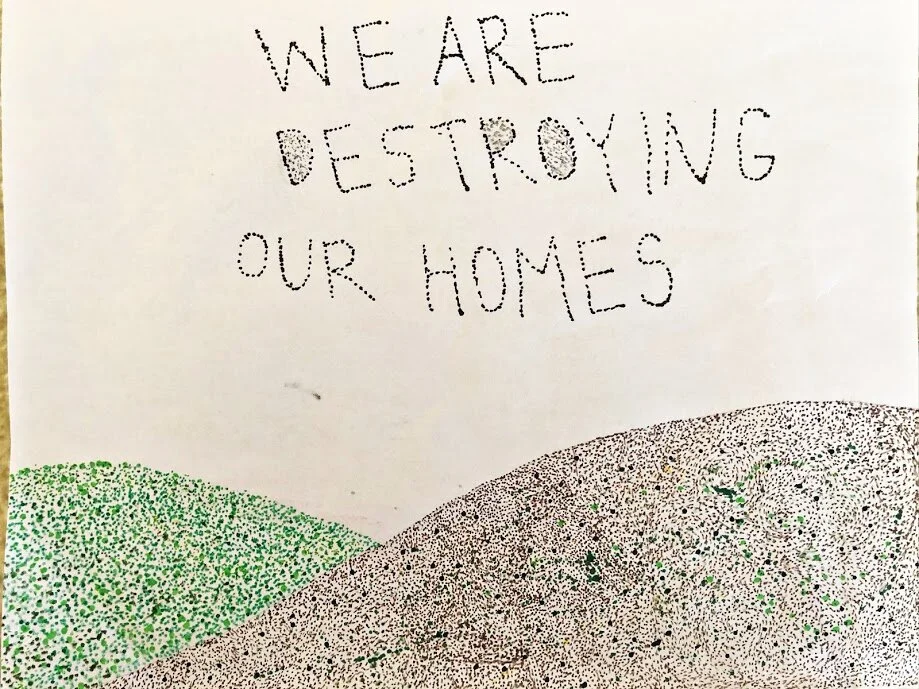 WE ARE
DESTROYING
OUR HOMES